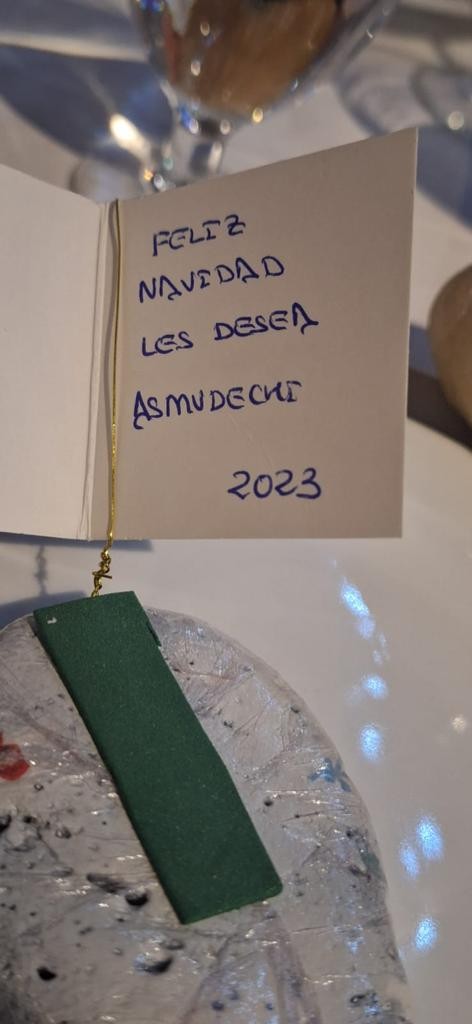 FELIZ
NAVIDAD
LES DESEA
ASMUDECHI
2023